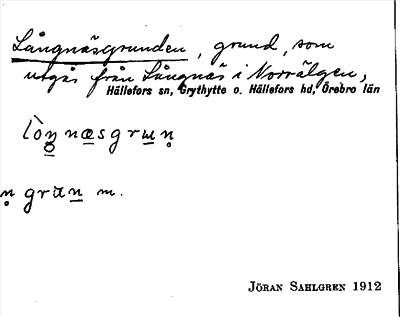 Långnäsgrunden, grund, som
utgås från Långnäs i Norrälgen,
Hällefors sn, Grythytte o. Hällefors hd, Örebro län
lòŋ næsgrɯn̥
n̥ grän m.
JÖRAN SAHLGREN 1912